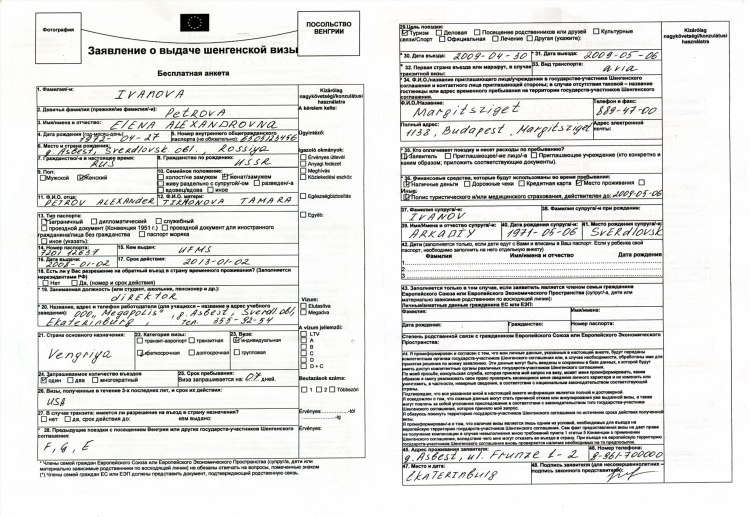 Фотография
ПОСОЛЬСТВО
ВЕНГРИИ
Заявление о выдаче шенгенской визы
Бесплатная анкета
1. Фамилия/-и:
IVANOVA
2. Девичья фамилия (прежняя/-ие фамилия/-и):
PETROVA
3. Имя/имена и отчество/-а:
ELENA ALEXANDROVNA
4. Дата рождения (год-месяц-день)
1973-04-27
5. Номер внутреннего общегражданского паспорта (не обязательно):
6. Место и страна рождения:
g. Asbest, Sverdlovsk obl., Rossiya
7. Гражданство/-а в настоящее время:
RUS
8. Гражданство по рождению:
USSR
9. Пол:
Мужской Женский
10. Семейное положение:
холост/не замужем женат/замужем
живу раздельно с супругой/-ом разведен/-а
вдовец/вдова иное:
11. Ф.И.О. отца:
PETROV ALEXANDER
12. Ф.И.О. матери:
TIKHONOVA TAMARA
13. Тип паспорта:
заграничный дипломатический служебный
проездной документ (Конвенция 1951 г.) проездной документ для иностранного
гражданина/лица без гражданства паспорт моряка
иное (указать):
14. Номер паспорта:
15. Кем выдан:
UFMS
16. Дата выдачи:
2008-01-02
17. Срок действия:
2013-01-02
18. Есть ли у Вас разрешение на обратный въезд в страну временного проживания? (Заполняется
нерезидентами РФ)
Нет Да, (номер и срок действия)
* 19. Занимаемая должность (или студент, школьник, пенсионер и др.):
direktor
* 20. Название, адрес и телефон работодателя (для учащихся – название и адрес учебного
заведения):
OOO, Megapolis, g. Asbest, Sverdl. obl,
Ekaterinburg тел. 355-92-54
21. Страна основного назначения:
Vengriya
22. Категория визы:
транзит-аэропорт транзитная
краткосрочная долгосрочная
23. Виза:
индивидуальная
групповая
24. Запрашиваемое количество въездов
один два многократный
25. Срок пребывания:
Виза запрашивается на: 07 дней.
26. Визы, полученные в течение 3-х последних лет, и срок их действия:
USA
27. В случае транзита: имеется ли разрешение на въезд в страну назначения?
нет да, срок действия до: кем выдано:
* 28. Предыдущие поездки с посещением Венгрии или других государств-участников Шенгенского
соглашения:
F, G, E
* Члены семей граждан Европейского Союза или Европейского Экономического Пространства (супруг/а, дети или
материально зависимые родственники по восходящей линии) не обязаны отвечать на вопросы, помеченные знаком
(*). Члены семей граждан ЕС или ЕЭП должны представить документ, подтверждающий родственную связь.
Kizárólag
nagykövetségi/konzulátusi
használatra
A kérelem kelte:
Ügyintéző:
Igazoló okmányok:
Érvényes útlevél
Anyagi fedezet
Meghívás
Közlekedési eszköz
Egészségbiztosítás
Egyéb:
Vízum:
Elutasítva
Megadva
A vízum jellemzői:
LTV
A
B
C
D
D + C
Beutazások száma:
1 2 Többszöri
Érvényes: -tól
-ig
Érvényes:
29. Цель поездки:
Туризм Деловая Посещение родственников или друзей Культурные
связи/Спорт Официальная Лечение Другая (укажите):
* 30. Дата въезда: 2009-04-30
* 31. Дата выезда: 2009-05-06
* 32. Первая страна въезда или маршрут, в случае
транзитной визы:
* 33. Вид транспорта:
avia
* 34. Ф.И.О./название приглашающего лица/учреждения в государстве-участнике Шенгенского
соглашения и контактного лица приглашающей стороны; в случае отсутствия таковой – название
гостиницы или адрес временного пребывания на территории государств-участников Шенгенского
соглашения.
Ф.И.О./Название:
Margitsziget
Телефон и факс:
889-47-00
Полный адрес:
1138, Budapest, Margitsziget
Адрес электронной
почты:
* 35. Кто оплачивает поездку и несет расходы по пребыванию?
Заявитель Приглашающее/-ие лицо/-а Приглашающее учреждение (кто конкретно и
каким образом; приложить соответствующие документы).
* 36. Финансовые средства, которые будут использованы во время пребывания:
Наличные деньги Дорожные чеки Кредитная карта Место проживания
Иные:
Полис туристического и/или медицинского страхования, действителен до: 2009-05-06
37. Фамилия супруга/-и:
IVANOV
38. Фамилия супруга/-и при рождении:
39. Имя/Имена и отчество супруга/-и:
ARKADIY
40. Дата рождения супруга/-и:
1971-05-06
41. Место рождения супруга/-и:
SVERDLOVSK
42. Дети (заполняется только, если дети едут с Вами и вписаны в Ваш паспорт. Если у ребенка свой
паспорт, необходимо заполнить на него отдельную анкету)
Фамилия Имя/имена и отчество Дата рождения
1.
2.
3.
43. Заполняется только в том случае, если заявитель является членом семьи гражданина
Европейского Союза или Европейского Экономического Пространства (супруг/а, дети или
материально зависимые родственники по восходящей линии):
Личные/анкетные данные гражданина ЕС или ЕЭП:
Фамилия:
Имя/имена:
Дата рождения:
Гражданство:
Номер паспорта:
Степень родственной связи с гражданином Европейского Союза или Европейского Экономического
Пространства:
45. Адрес проживания заявителя:
g. Asbest, ul. Frunze 1-2
46. Номер телефона:
8-961-700000
47. Место и дата:
EKATERINBURG
48. Подпись заявителя (для несовершеннолетних –
подпись законного представителя):
Kizárólag
nagykövetségi/konzulátusi
használatra